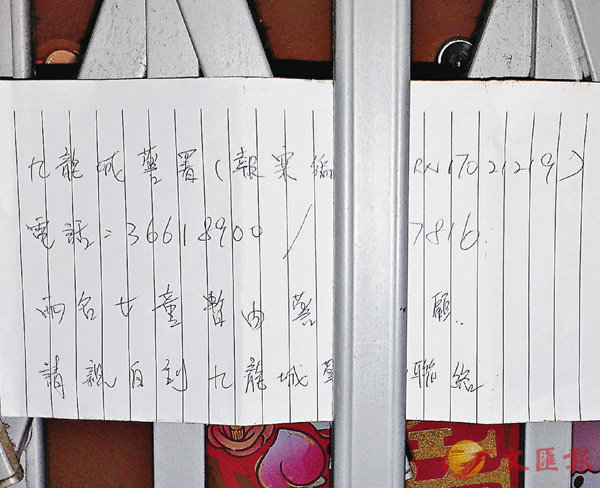 九龍城警署(報案編 RN17021219)
電話:36618900 / 7816
兩名女童暫由警 顧.
請親自到九龍城警 聯絡
文匯報